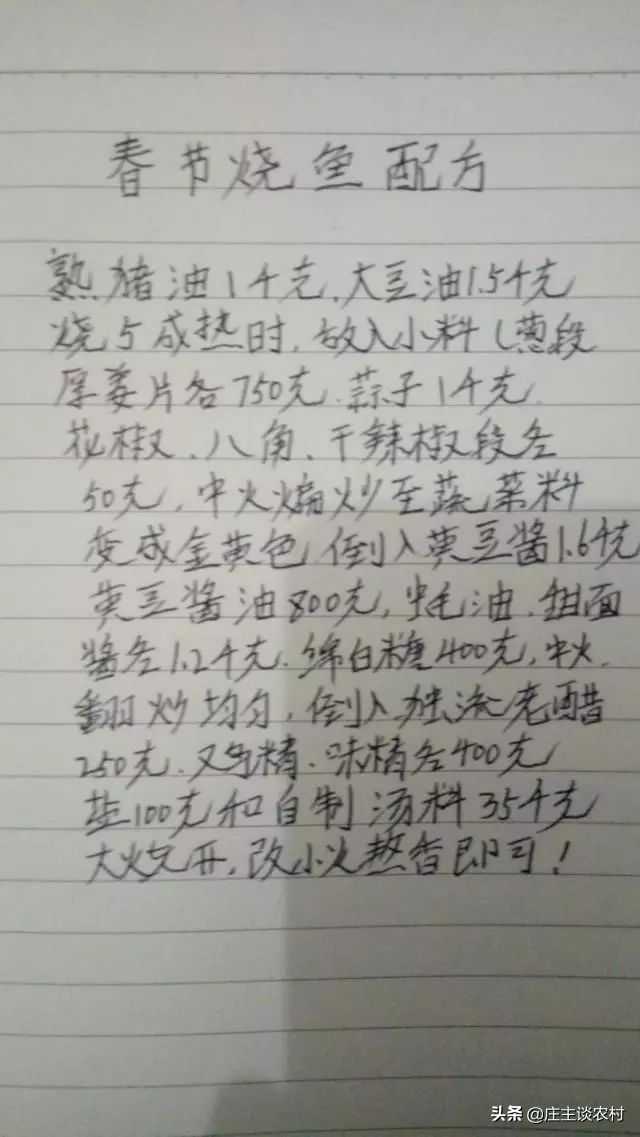 春节烧鱼配方
熟猪油1千克、大豆油1.5千克
烧5成热时,放入小料(葱段
厚姜片各750克、蒜子1千克
花椒、八角、干辣椒段各
50克,中火煸炒至蔬菜料
变成金黄色,倒入黄豆酱1.6千克
黄豆酱油800克,蚝油、甜面
酱各1.2千克、绵白糖400克,中火
翻炒均匀,倒入独流老醋
250克、鸡精、味精各400克
盐100克和自制汤料35千克
大火烧开,改小火熬香即可!
头条 @庄主谈农村